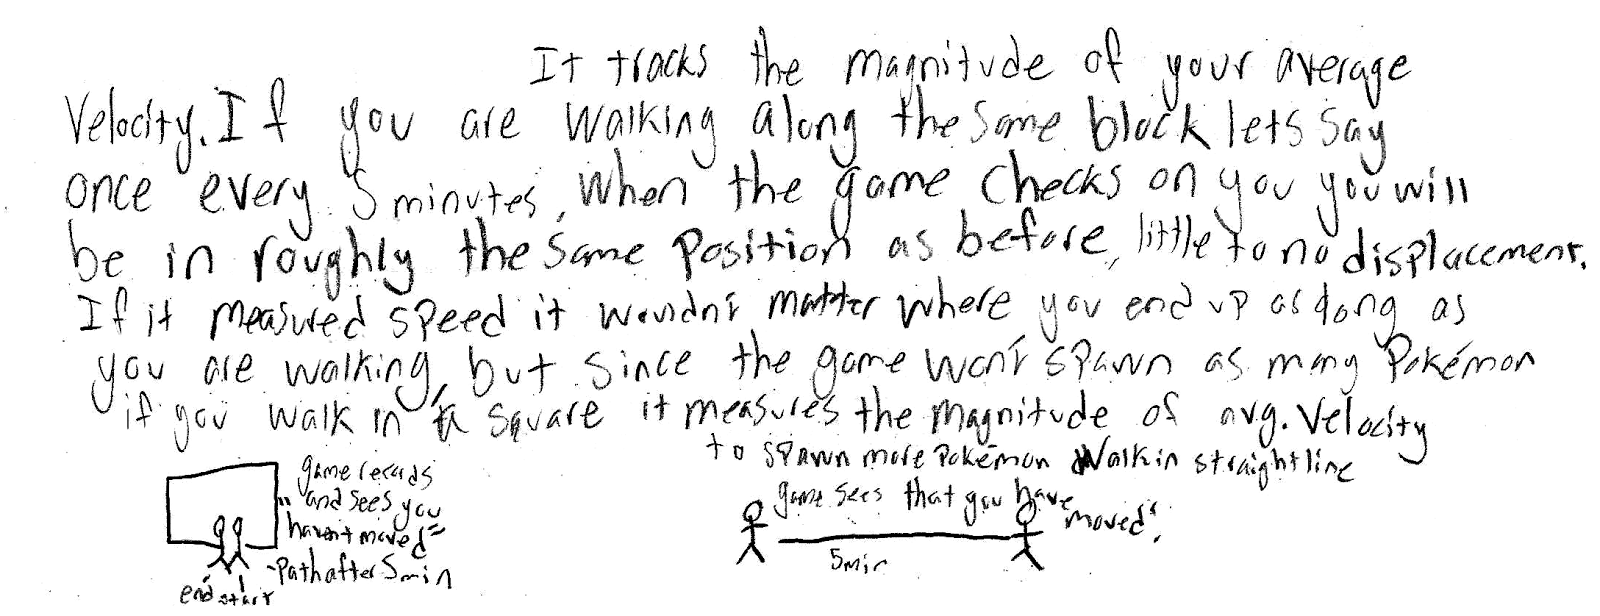 It tracks the magnitude of your average
Velocity. If you are walking along the same block lets say
once every 5 minutes, When the game checks on you you will
be in roughly the same position as before, little to no displacement.
If it measured speed it wouldn't matter where you end up as long as
you are walking, but since the game won't spawn as many Pokémon
if you walk in a square it measures the magnitude of avg. Velocity
to spawn more Pokémon Walk in straight line
game records
"and sees you
haven't moved"
-Path after 5 min
end start
game sees that you have
moved".
5min